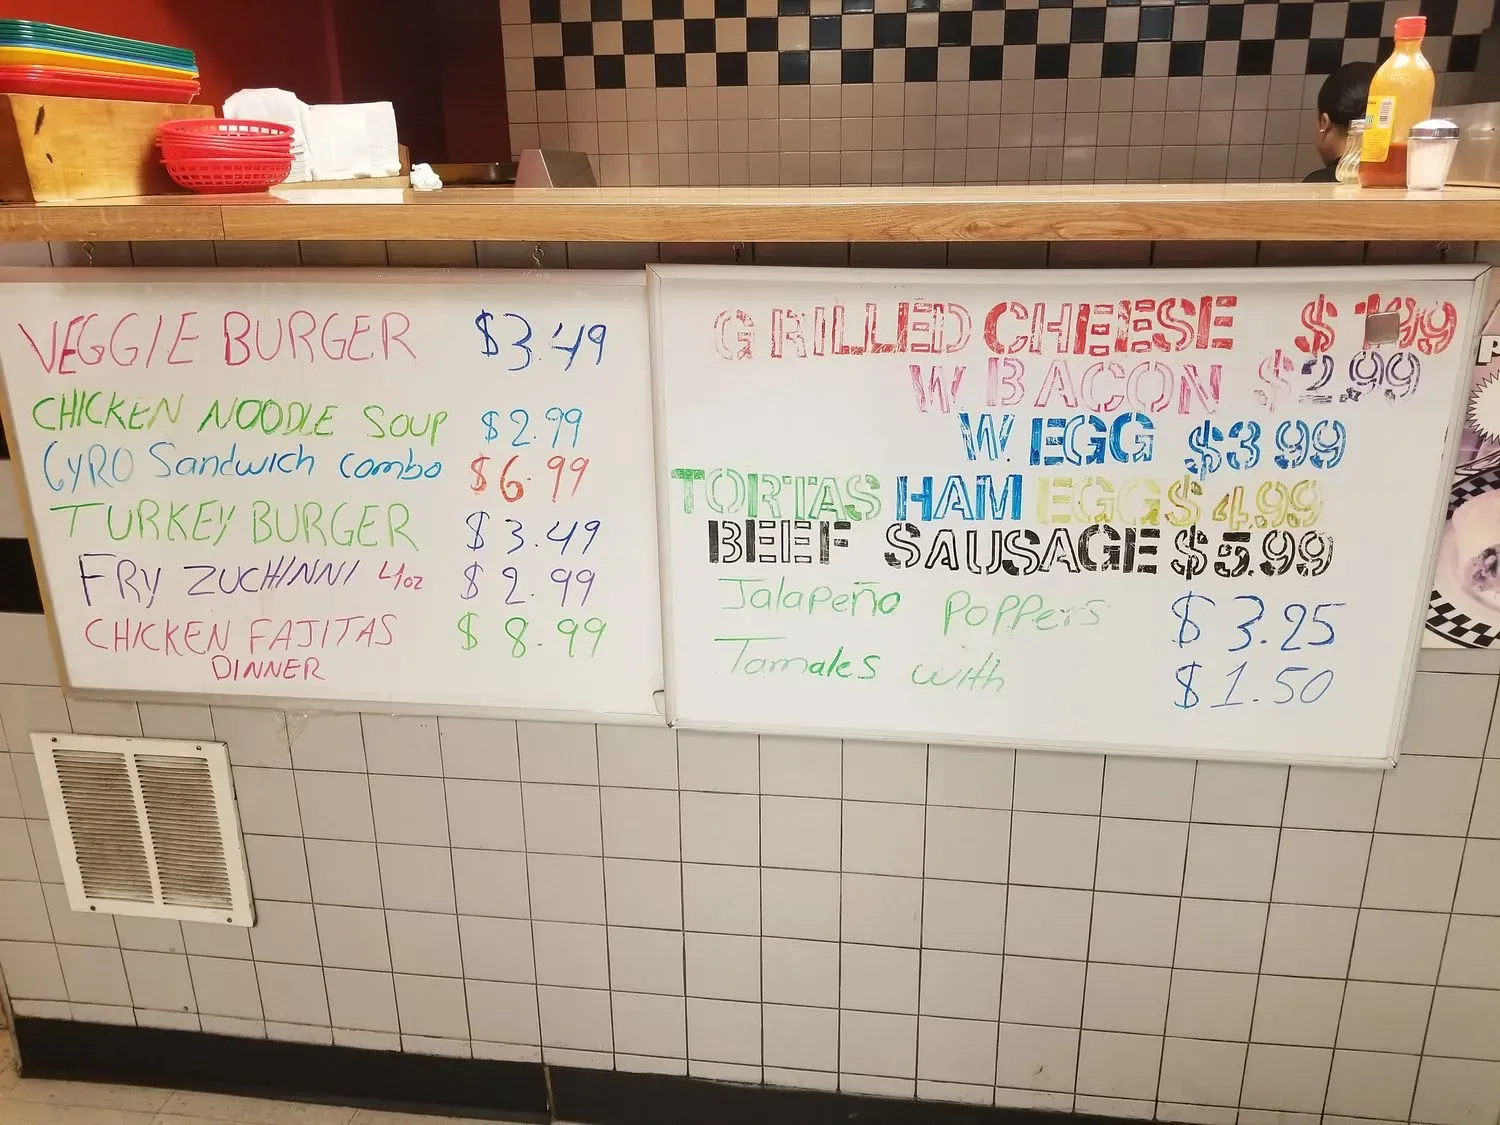 VEGGIE BURGER $3.49
CHICKEN NOODLE SOUP $2.99
GYRO Sandwich combo $6.99
TURKEY BURGER $3.49
FRY ZUCHINNI 4oz $2.99
CHICKEN FAJITAS $8.99
DINNER
GRILLED CHEESE $1.99
W BACON $2.99
W. EGG $3.99
TORTAS HAM EGG $4.99
BEEF SAUSAGE $5.99
Jalapeño Poppers $3.25
Tamales with $1.50